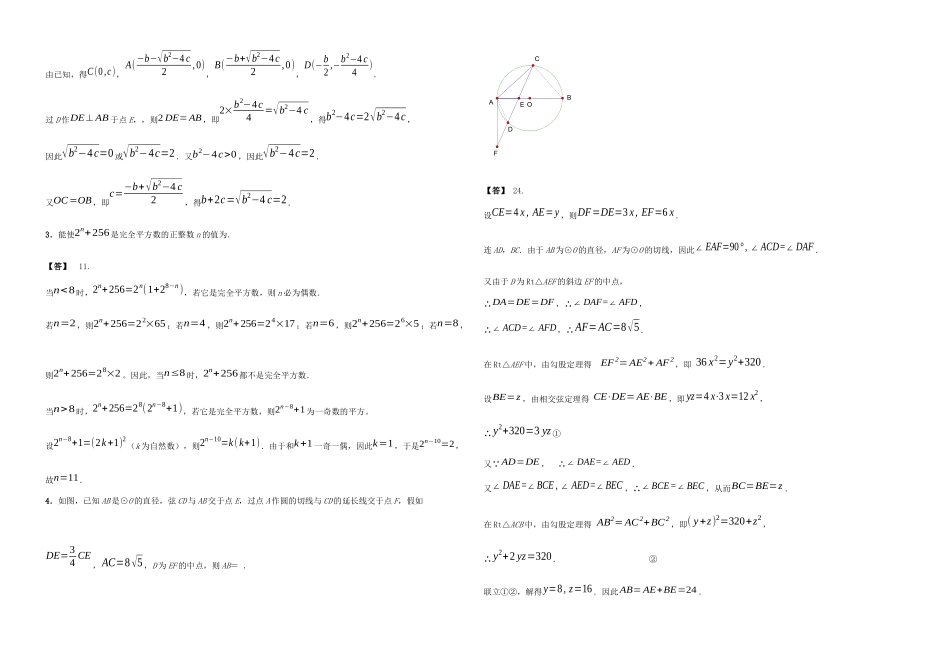 由已知,得C(0,c), A((−b−√(b²−4c))/2,0), B((−b+√(b²−4c))/2,0), D(−b/2,−(b²−4c)/4).
过 D作DE⊥AB于点E,,则2DE=AB,即2×(b²−4c)/4=√(b²−4c),得b²−4c=2√(b²−4c),
因此√(b²−4c)=0或√(b²−4c)=2.又b²−4c>0,因此√(b²−4c)=2.
又OC=OB,即c=(−b+√(b²−4c))/2,得b+2c=√(b²−4c)=2.
3.能使2ⁿ+256是完全平方数的正整数n的值为.
【答】 11.
当n<8时,2ⁿ+256=2ⁿ(1+2⁸⁻ⁿ),若它是完全平方数,则n必为偶数.
若n=2,则2ⁿ+256=2²×65;若n=4,则2ⁿ+256=2⁴×17;若n=6,则2ⁿ+256=2⁶×5;若n=8,
则2ⁿ+256=2⁸×2.因此,当n≤8时,2ⁿ+256都不是完全平方数.
当n>8时,2ⁿ+256=2⁸(2ⁿ⁻⁸+1),若它是完全平方数,则2ⁿ⁻⁸+1为一奇数的平方。
设2ⁿ⁻⁸+1=(2k+1)²(k为自然数),则2ⁿ⁻¹⁰=k(k+1).由于和k+1一奇一偶,因此k=1,于是2ⁿ⁻¹⁰=2,
故n=11.
4.如图,已知AB是⊙O的直径,弦CD与AB交于点E,过点A作圆的切线与CD的延长线交于点F,假如
DE=3/4CE,AC=8√5,D为EF的中点,则AB= .
C
A
E O
B
D
F
【答】 24.
设CE=4x,AE=y,则DF=DE=3x,EF=6x.
连AD,BC.由于AB为⊙O的直径,AF为⊙O的切线,因此∠EAF=90°,∠ACD=∠DAF.
又由于D为Rt△AEF的斜边EF的中点,
∴DA=DE=DF,∴∠DAF=∠AFD,
∴∠ACD=∠AFD,∴AF=AC=8√5.
在Rt△AEF中,由勾股定理得 EF²=AE²+AF²,即 36x²=y²+320.
设BE=z,由相交弦定理得 CE·DE=AE·BE,即yz=4x·3x=12x²,
∴y²+320=3yz①
又∵AD=DE, ∴∠DAE=∠AED.
又∠DAE=∠BCE,∠AED=∠BEC,∴∠BCE=∠BEC,从而BC=BE=z.
在Rt△ACB中,由勾股定理得 AB²=AC²+BC²,即(y+z)²=320+z²,
∴y²+2yz=320. ②
联立①②,解得y=8,z=16.因此AB=AE+BE=24.